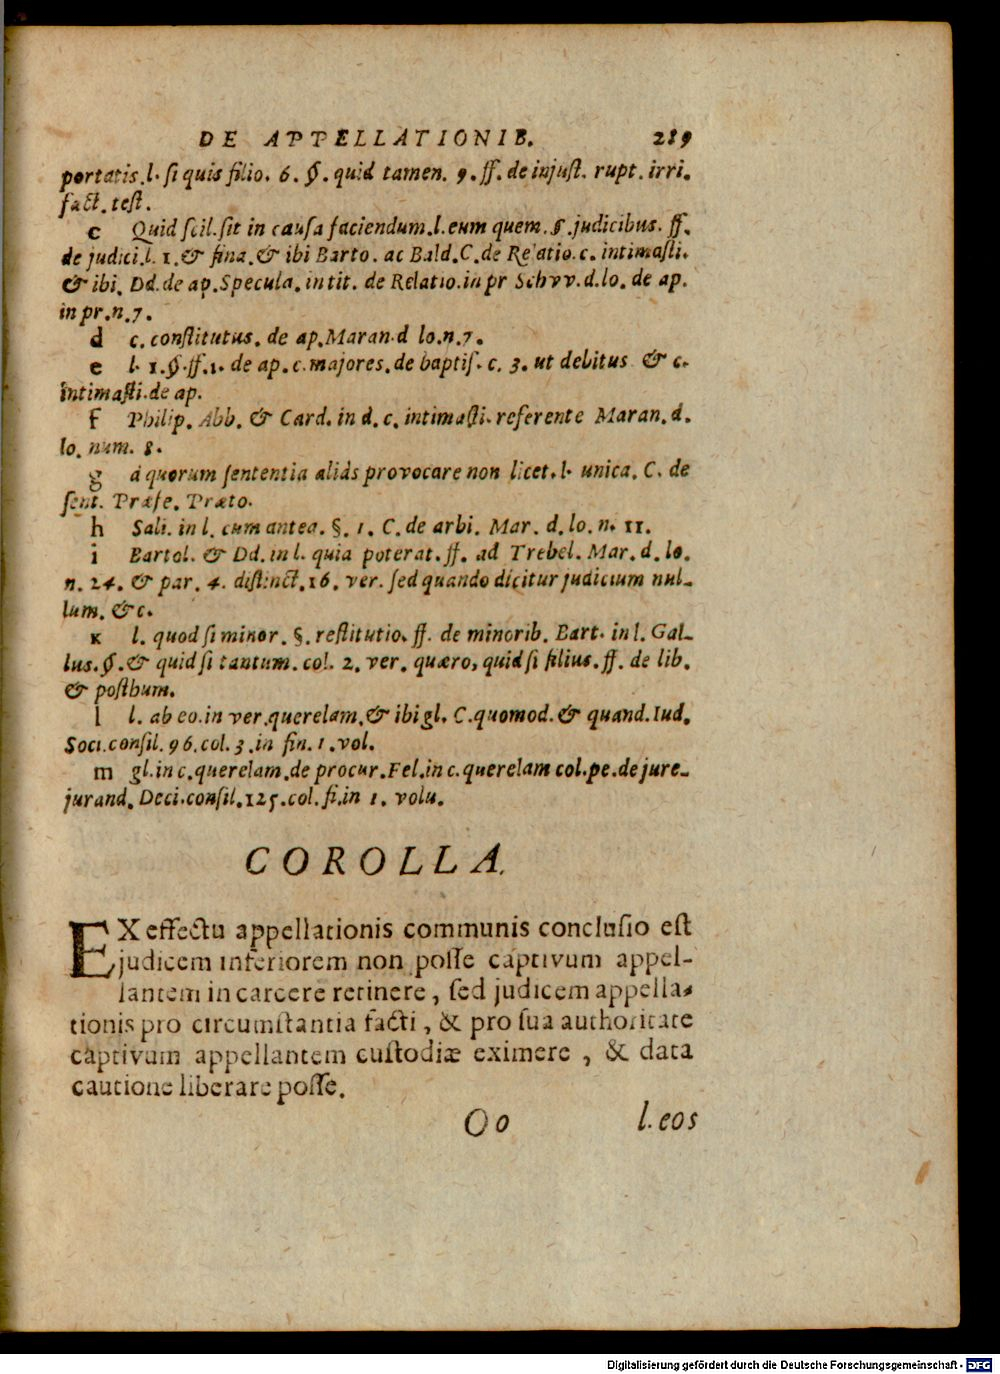 DE APPELLATIONIB. 289
portatis.l. ſi quis filio. 6. §. quid tamen. 9. ff. de injuſt. rupt. irri.
fact. teſt.
c Quid ſcil. ſit in cauſa faciendum.l. eum quem. §. judicibus. ff.
de judici.l. 1. & fina. & ibi Barto. ac Bald. C. de Relatio. c. intimaſti.
& ibi. Dd. de ap. Specula. in tit. de Relatio. in pr Schvv. d. lo. de ap.
in pr. n. 7.
d c. conſtitutus. de ap. Maran. d lo. n. 7.
e l. 1. §. ff. 1. de ap. c. majores. de baptiſ. c. 3. ut debitus & c.
intimaſti. de ap.
f Philip. Abb. & Card. in d. c. intimaſti. referente Maran. d.
lo. num. 8.
g à quorum ſententia aliàs provocare non licet. l. unica. C. de
ſent. Præfe. Præto.
h Sali. in l. cum antea. §. 1. C. de arbi. Mar. d. lo. n. 11.
i Bartol. & Dd. in l. quia poterat. ff. ad Trebel. Mar. d. lo.
n. 24. & par. 4. diſtinct. 16. ver. ſed quando dicitur judicium nul-
lum. &c.
k l. quod ſi minor. §. reſtitutio. ff. de minorib. Bart. in l. Gal-
lus. §. & quid ſi tantum. col. 2. ver. quæro, quid ſi filius. ff. de lib.
& poſthum.
l l. ab eo. in ver. querelam. & ibi gl. C. quomod. & quand. Iud.
Soci. conſil. 96. col. 3. in fin. 1. vol.
m gl. in c. querelam. de procur. Fel. in c. querelam col. pe. de jure-
jurand. Deci. conſil. 125. col. fi. in 1. volu.
COROLLA.
EX effectu appellationis communis concluſio eſt
judicem inferiorem non poſſe captivum appel-
lantem in carcere retinere, ſed judicem appella-
tionis pro circumſtantia facti, & pro ſua authoritate
captivum appellantem cuſtodiæ eximere, & data
cautione liberare poſſe.
Oo l. eos
Digitalisierung gefördert durch die Deutsche Forschungsgemeinschaft - DFG